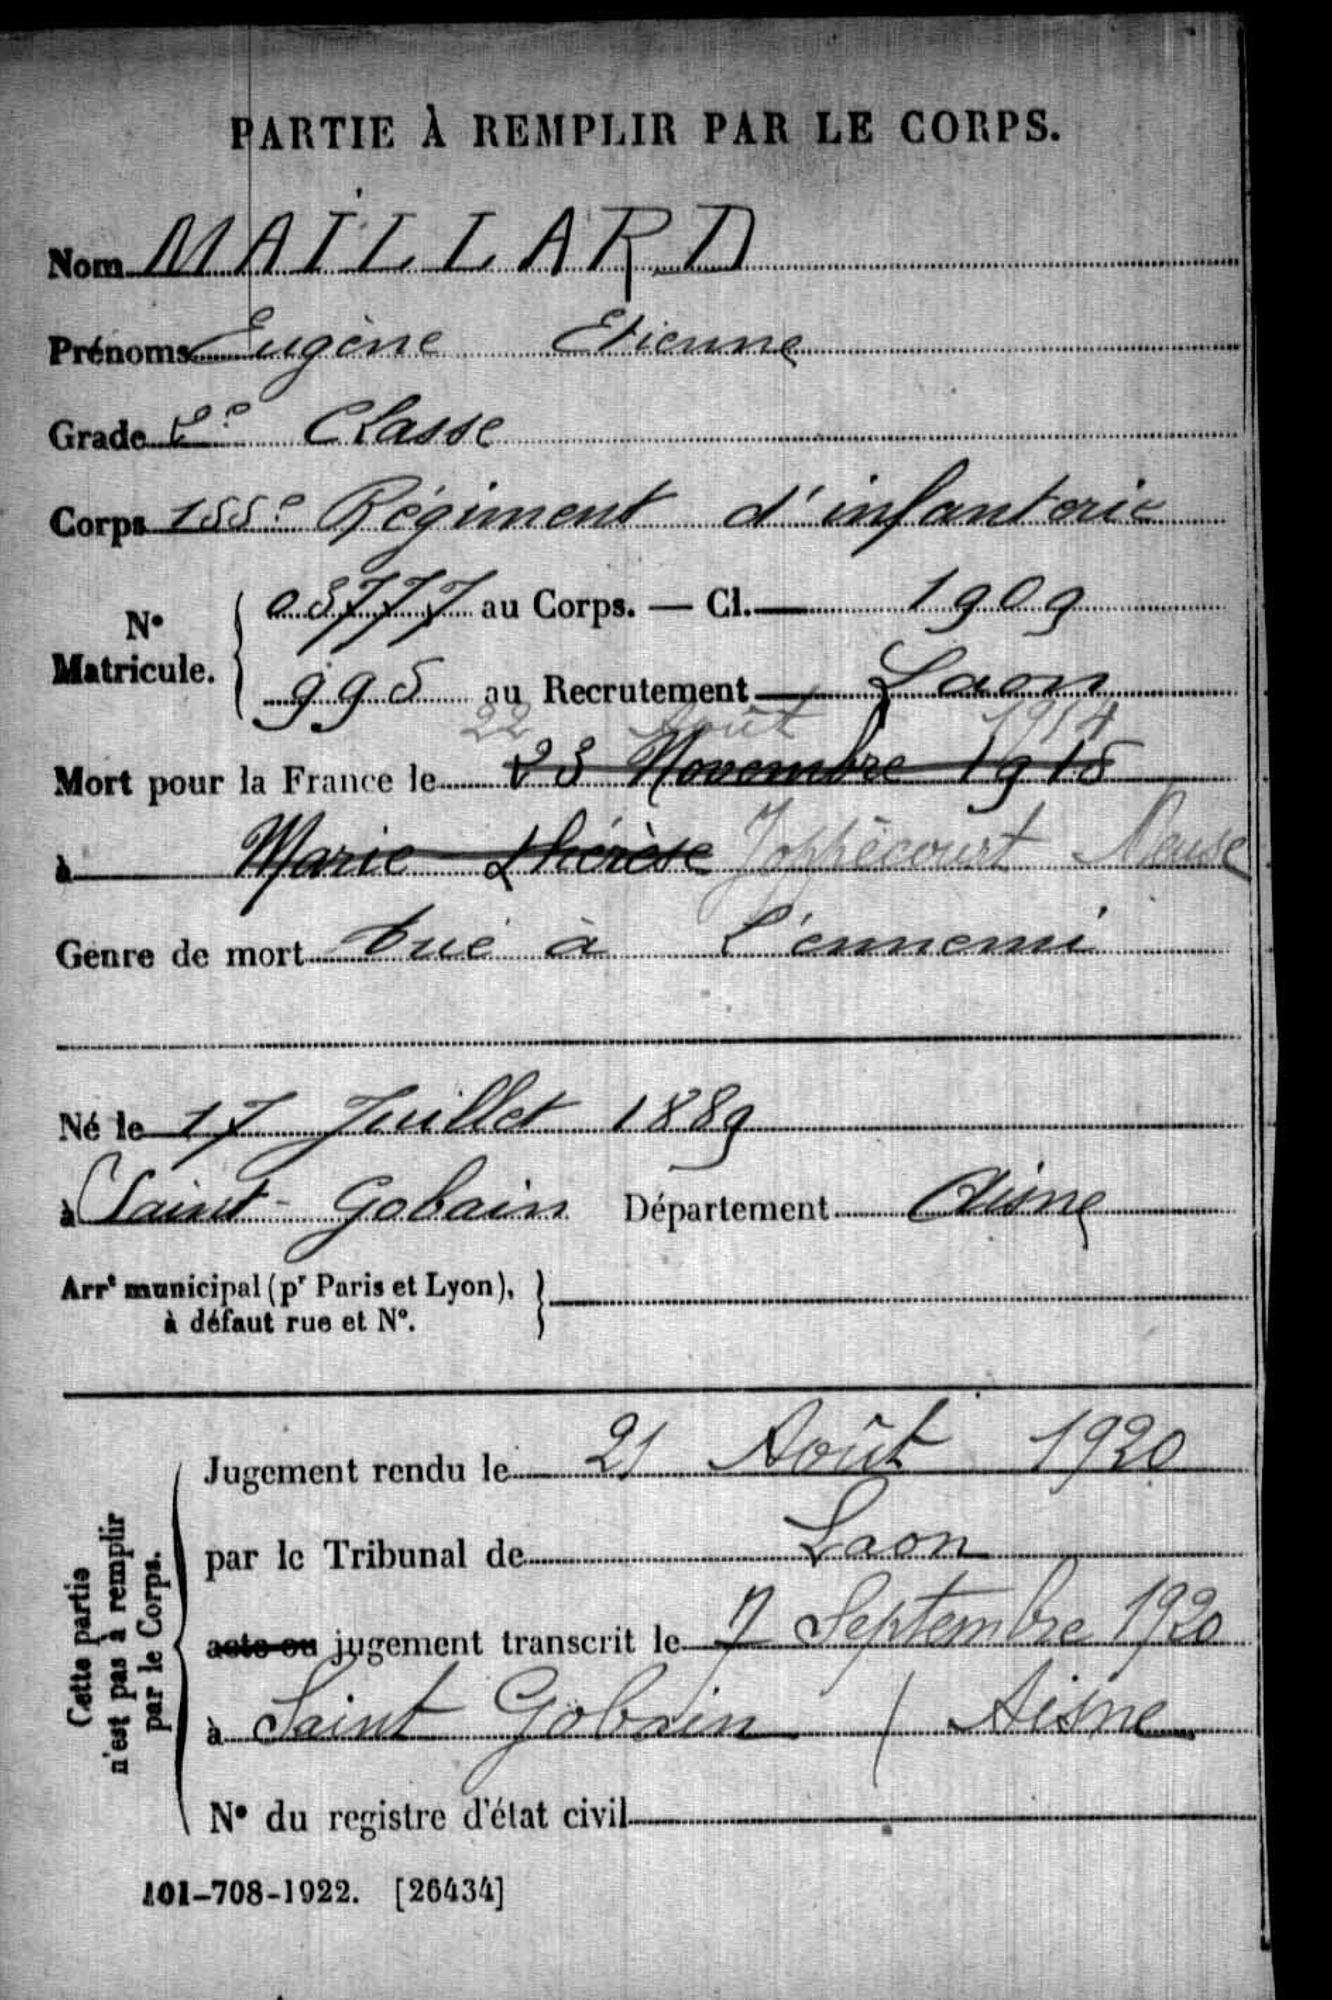 PARTIE À REMPLIR PAR LE CORPS.
Nom MAILLARD
Prénoms Eugène Etienne
Grade 2e Classe
Corps 155e Régiment d'infanterie
No Matricule. 03777 au Corps. — Cl. 1909
995 au Recrutement Laon
22 Août 1914
Mort pour la France le 23 Novembre 1915
à Marie Thérèse Joppécourt Meuse
Genre de mort tué à l'ennemi
Né le 17 Juillet 1889
à Saint-Gobain Département Aisne
Arrt municipal (pr Paris et Lyon),
à défaut rue et No.
Cette partie
n'est pas à remplir
par le Corps.
Jugement rendu le 21 Août 1920
par le Tribunal de Laon
acte ou jugement transcrit le 7 Septembre 1920
à Saint Gobain / Aisne
No du registre d'état civil
101-708-1922. [26434]